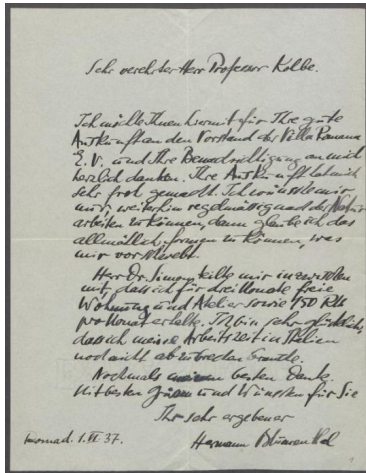 Sehr verehrter Herr Professor Kolbe.
Ich möchte Ihnen hiermit für Ihre gute
Auskunft an den Vorstand der Villa Romana
E.V. und Ihre Benachrichtigung an mich
herzlich danken. Ihre Auskunft hat mich
sehr froh gemacht. Ich wünsche mir
nur, weiterhin regelmässig nach der Natur
arbeiten zu können, dann glaube ich das
allmählich formen zu können, was
mir vorschwebt.
Herr Dr. Simon teilte mir inzwischen
mit, dass ich für drei Monate freie
Wohnung und Atelier sowie 150 RM
pro Monat erhalte. Ich bin sehr glücklich,
dass ich meine Arbeitszeit in Italien
noch nicht abzubrechen brauche.
Nochmals besten Dank.
Mit besten Grüssen und Wünschen für Sie
Ihr sehr ergebener
1. VI. 37.
Hermann Blumenthal